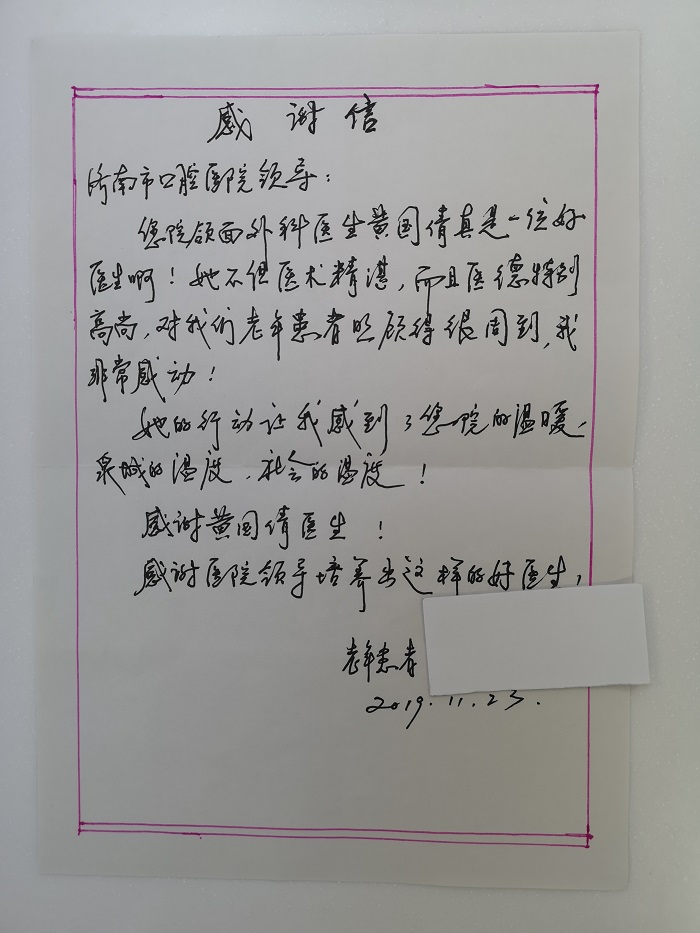 感谢信
济南市口腔医院领导：
您院颌面外科医生黄国倩真是一位好
医生啊！她不但医术精湛，而且医德特别
高尚，对我们老年患者照顾得很周到，我
非常感动！
她的行动让我感到了您院的温暖，
泉城的温度，社会的温度！
感谢黄国倩医生！
感谢医院领导培养出这样的好医生，
老年患者
2019.11.23.